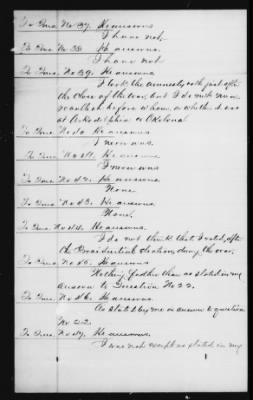 To Ques. No 37. He answers
I have not.
To Ques. No 38. He answers.
I have not
To Ques. No 39. He answers
I took the amnesty oath just after
the close of the war, but I do not
recollect before whom, or whether it was
at Arkadelphia or Okolona
To Ques. No 40 He answers
I never was
To Ques. No 41. He answers
I never was
To Ques. No 42. He answers
None
To Ques. No 43. He answers
None.
To Ques. No 44. He answers.
I do not think that I voted, after
the Presidential election, during the war.
To Ques. No 45. He answers
Nothing further than as stated in my
answer to Question No 22.
To Ques. No 46. He answers.
As stated by me in answer to question
No 22.
To Ques. No 47. He answers.
I was not except as stated in my